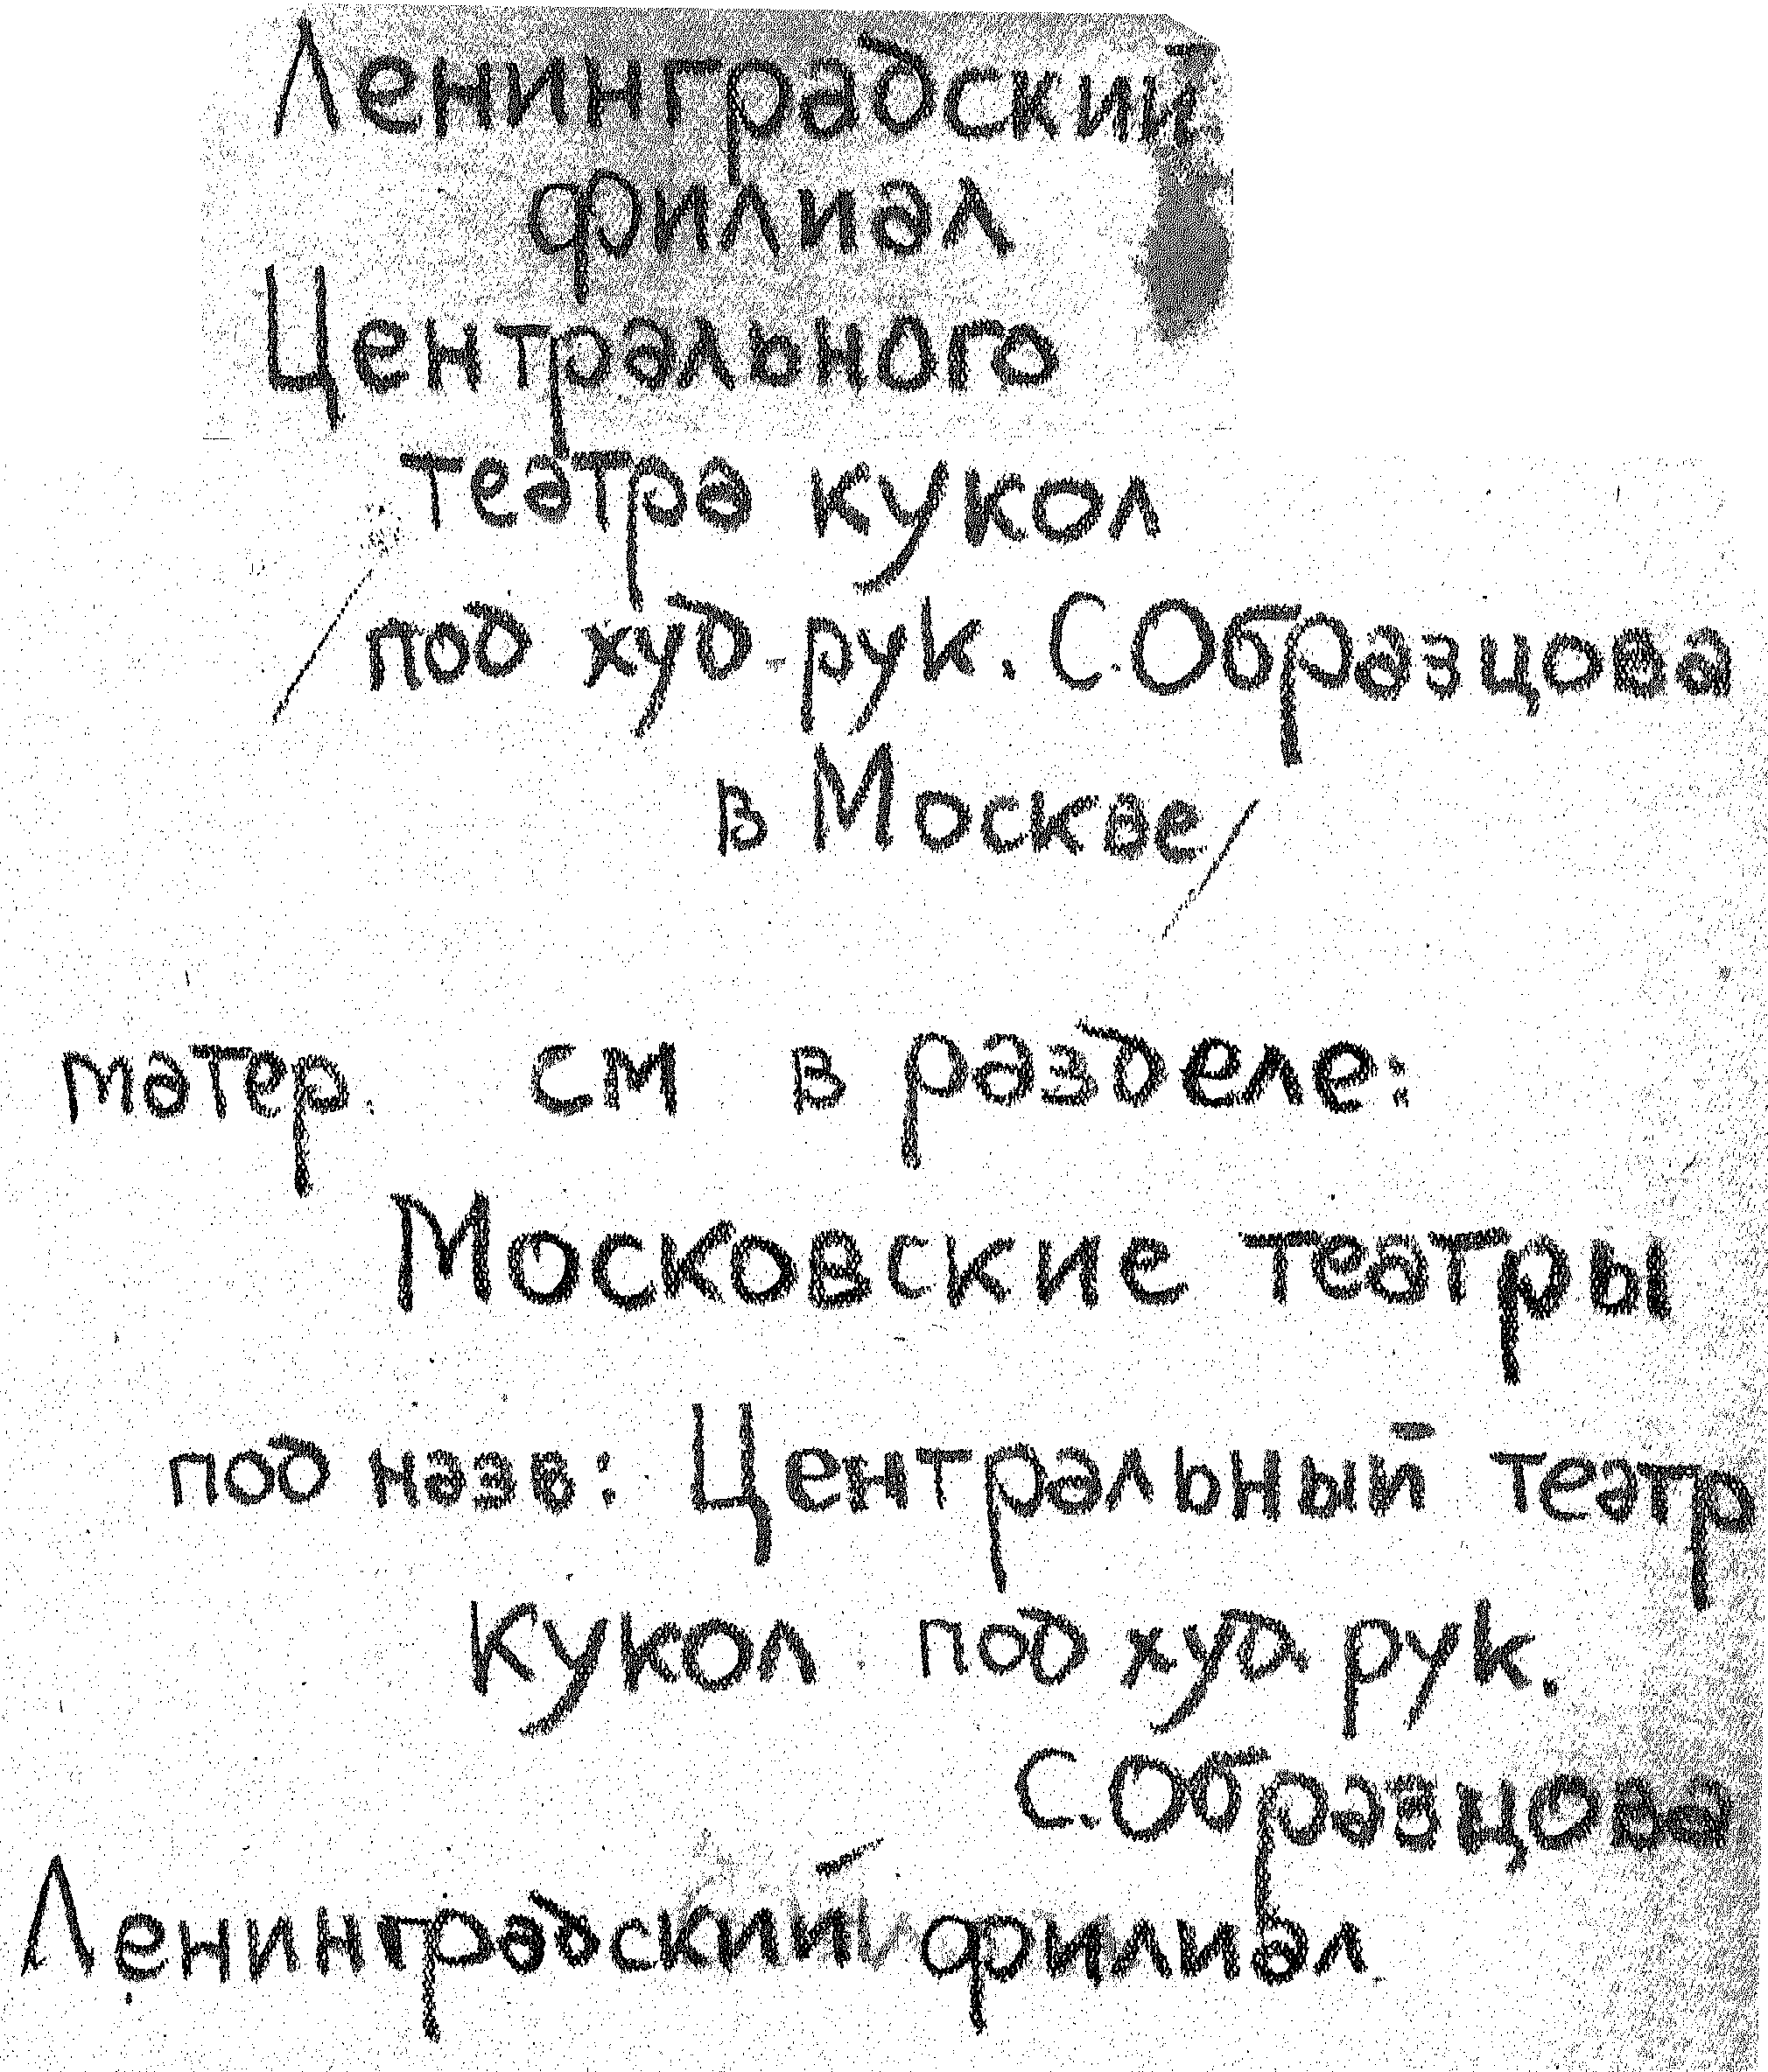 Ленинградский
филиал
Центрального
театра кукол
/под худ. рук. С. Образцова
в Москве/
матер. см в разделе:
Московские театры
под назв: Центральный театр
кукол под худ. рук.
С. Образцова
Ленинградский филиал